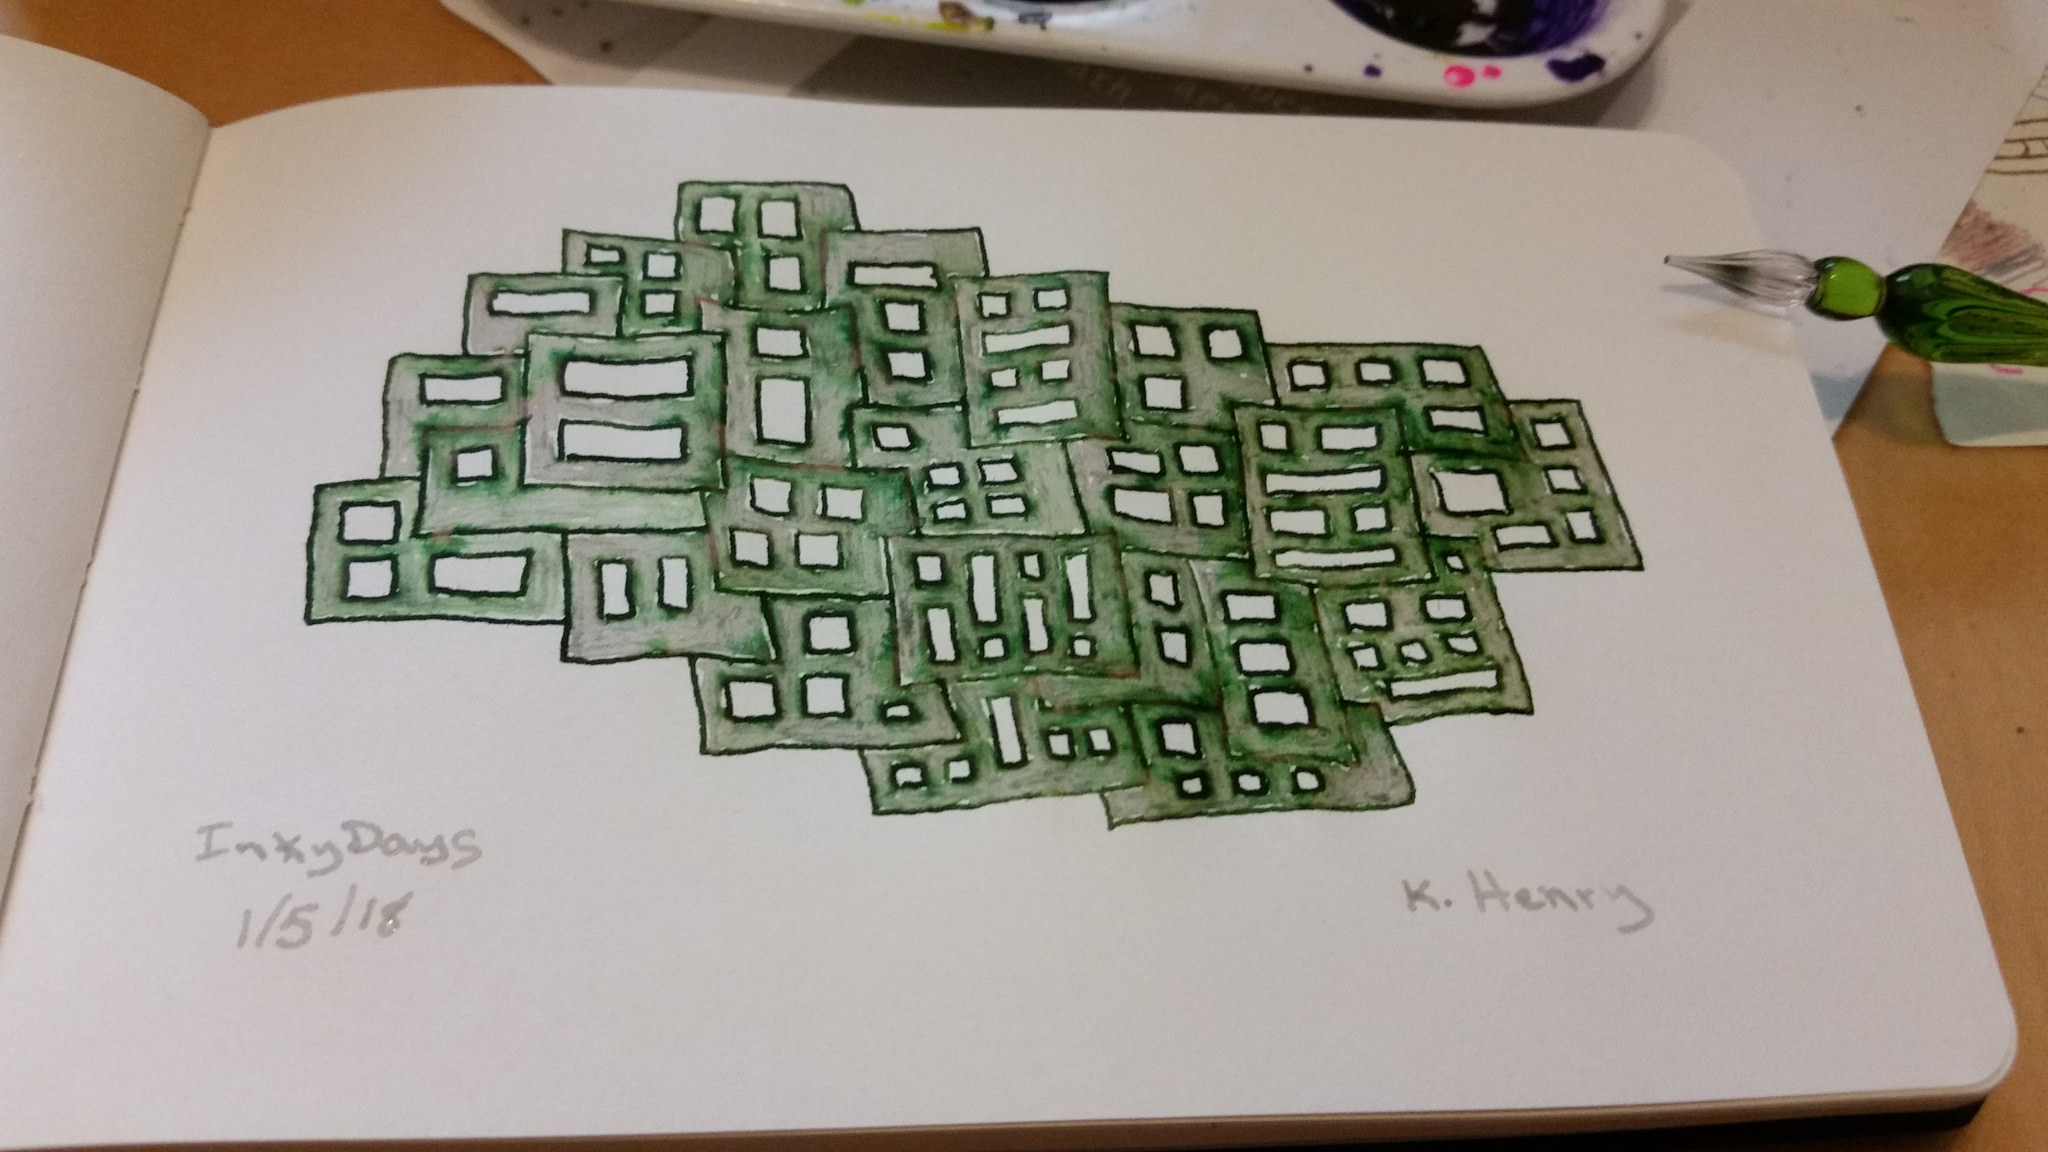 InkyDays
1/5/18
K. Henry